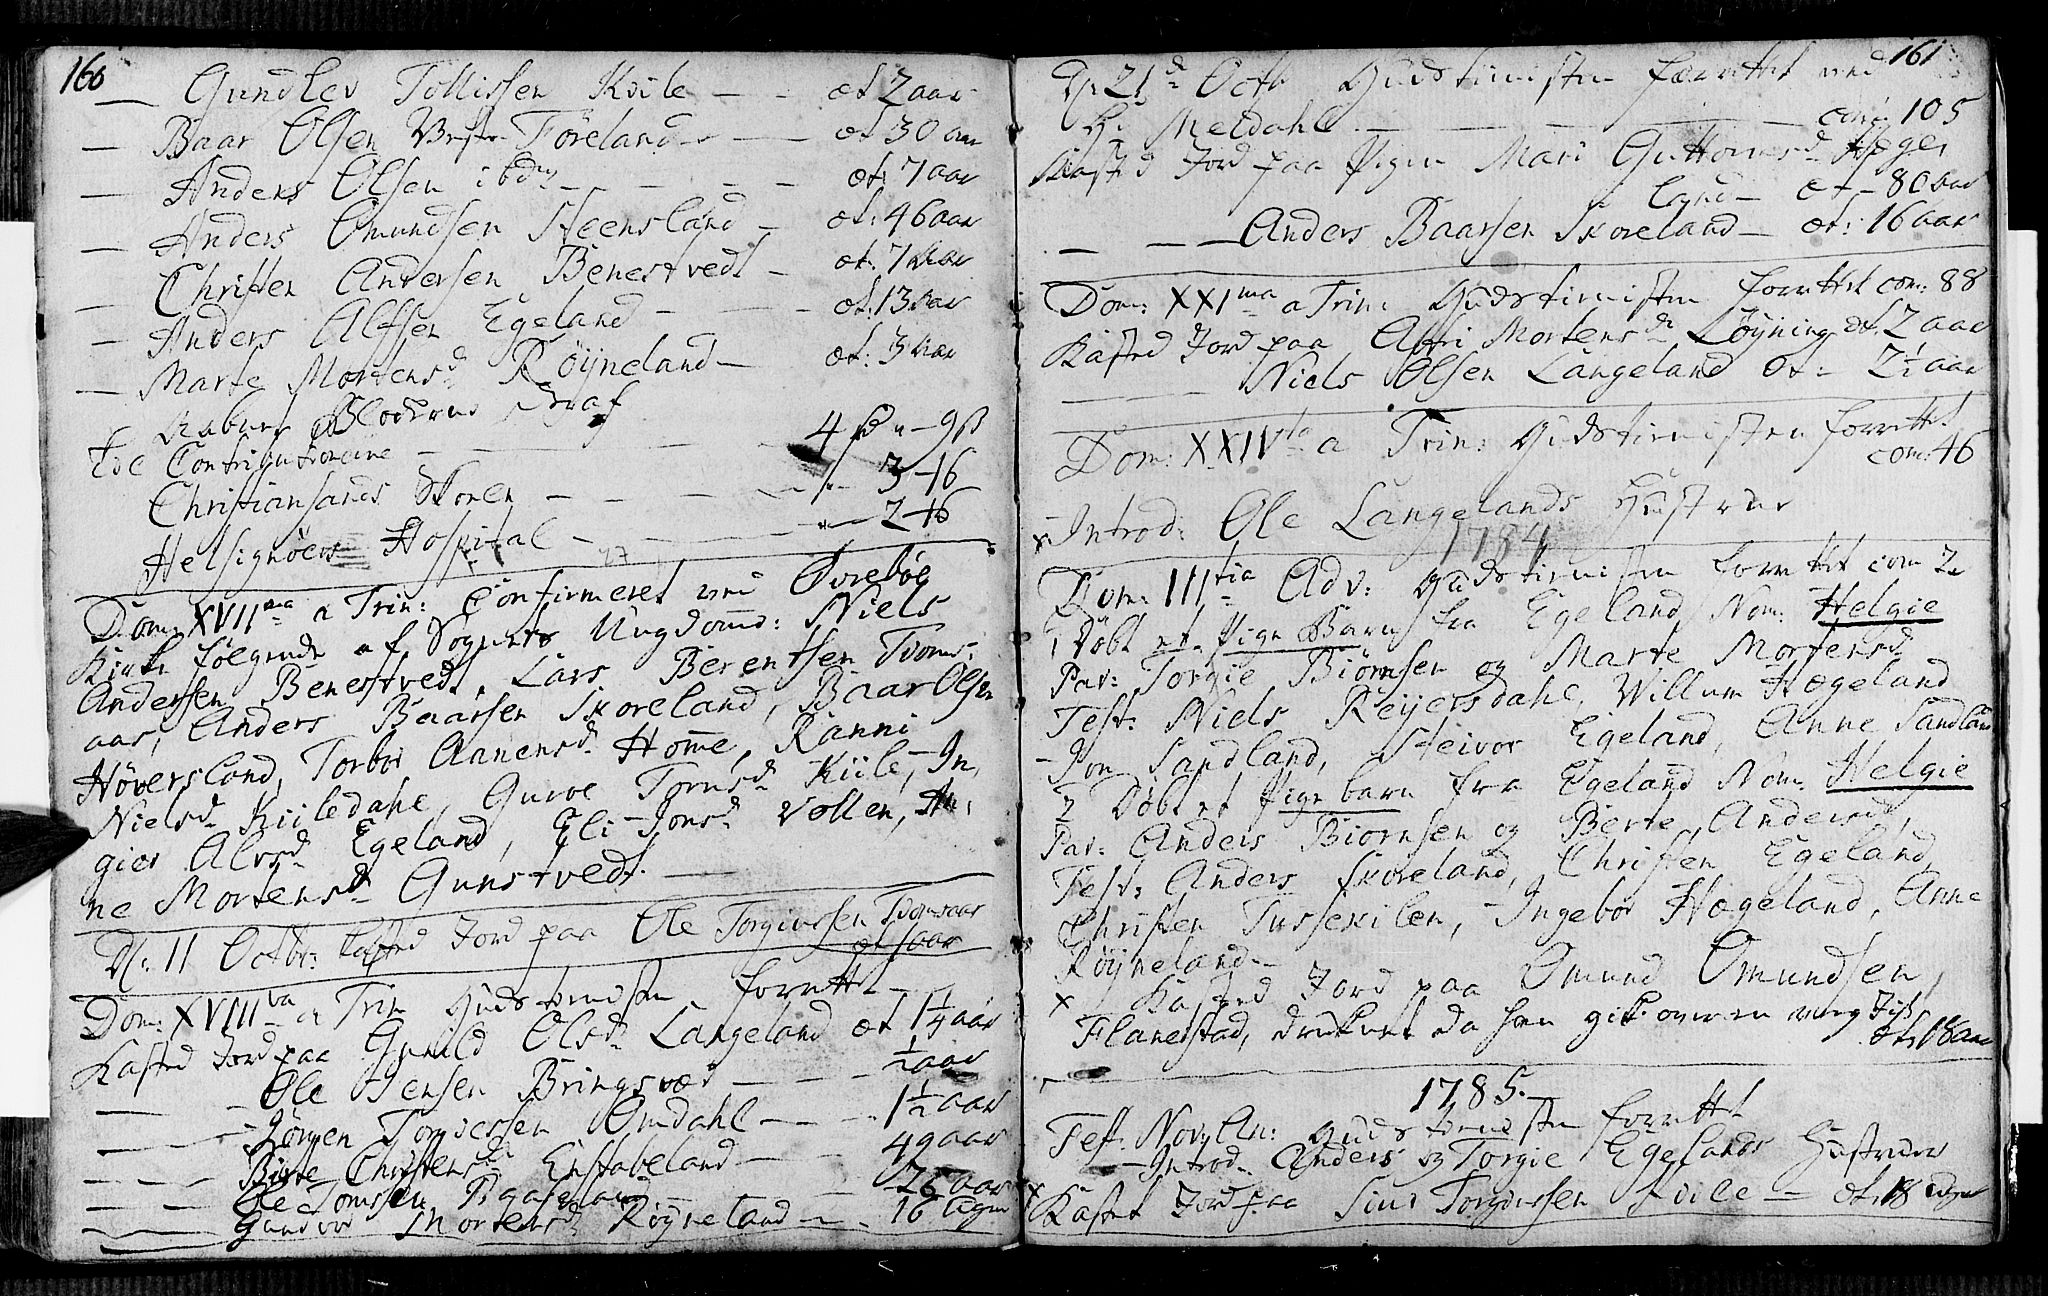 160
— Gundlev Tollissen Kiile — - æt 2 aar
— Baar Olsen Vestre Føreland - — æt 30 aar
— Anders Olsen ibdm - - - - æt: 7 aar
— Anders Omundsen Steensland - æt: 46 aar
Christen Andersen Benestvedt - æt: 7 aar
— Anders Alfsen Egeland - — æt: 13 aar
— Marte Mortensd. Røyneland — æt: 3 aar
Contributionerne 4 - 9 ß
Christiansands - - - 3-16
Helsignøers Hospital - - - 2-16
27
Dom: XVIIma a Trin: Confirmeret ved Øvrebøe
Kirke følgende af Sognets Ungdomm: Niels
Andersen Benestvedt, Lars Berentsen Tvoms-
aas, Anders Baarsen Skoreland, Baar Olsen
Høversland, Torbor Aanensd. Homme, Ranni
Nielsd. Kiiledahl, Guroe Tornsd. Kiile, In-
gier Alvsd. Egeland, Eli Jonsd. Vollen, An-
ne Mortensd. Gunstvedt. —
D. 11 Octbr: Kasted Jord paa Ole Torgiussen Tvomsaas
Dom: XVIIIva a Trin Gudstienisten forrettet
Kasted Jord paa Gunild Olsd. Langeland æt 1¼ aar
— - Ole Jensen Bringsvæd — - - ½ aar
— - Jørgen Torgiessen Omdahl - - - 1½ aar
- - - Birte Christensd. Enstabeland - - 49 aar
- - - Ole Tomssen - - 26 aar
Gundvor Mortensd. Røyneland - - 16 Uger
161
D. 21d Octb Gudstienisten forrettet ved
Hr. Meldahl - - - - com: 105
Kasted Jord paa Pigen Mari Guttormsd. Hæge-
land - æt - 80 aar
- - — Anders Baarsen Skoreland - æt: 16 aar
Dom: XXIma a Trin: Gudstienisten forrettet com: 88
Kasted Jord paa Astri Mortensd. Løyning æt 2 aar
- - - Niels Olsen Langeland æt - 2½ aar
Dom: XXIVta a Trin: Gudstienisten forrettet
com: 46
x Introd: Ole Langelands Hustrue
1784
Dom: IIItia Adv: Gudstienisten forrettet com 2
1 Døbt et Pige Barn fra Egeland, Nom: Helgie
Par: Torgie Biørnsen og Marte Mortensd
Test: Niels Reyersdahl, Willum Hægeland
Jon Sandland, Steivor Egeland, Anne Sandland
2 Døbt et Pige barn fra Egeland Nom: Helgie
Par: Anders Biørnsen og Berte Andersd,
Test: Anders Skoreland, Christen Egeland,
Christen Tussekilen, Ingebor Hægeland, Anne
Røyneland -
x Kasted Jord paa Omund Omundsen
Flanestad, druknet da han gik over en Jiss
æt 18 aar
1785.
Fest: Nov: An: Gudstienisten forrettet
— Introd: Anders og Torgie Egelands Hustruer
x Kasted Jord paa Torgiussen Kiile - æt 18 Uger